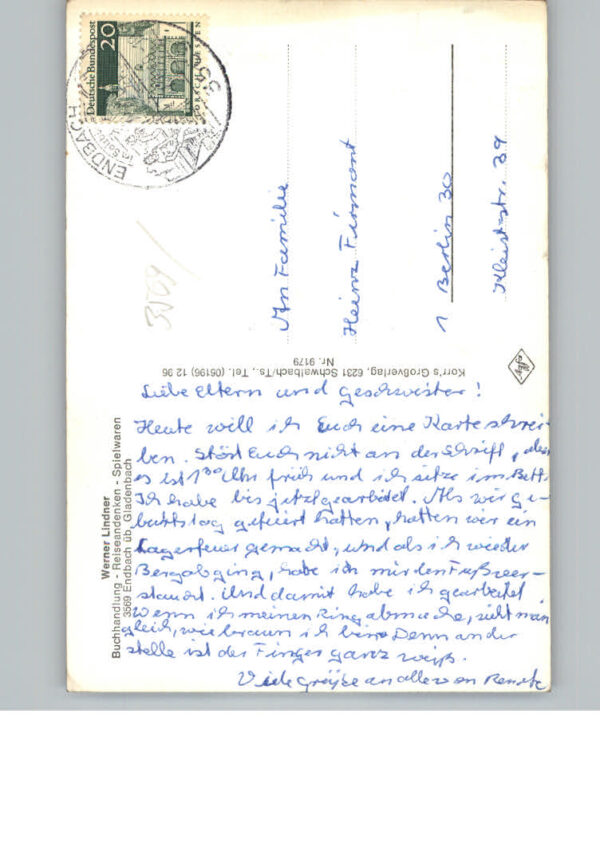 Deutsche Bundespost
20
ENDBACH
3569
An Familie
Heinz Firmont
1 Berlin 30
Kleiststr. 39
Korr's Großverlag, 6231 Schwalbach/Ts., Tel. (06196) 12 96
Nr. 9179
Werner Lindner
Buchhandlung - Reiseandenken - Spielwaren
3569 Endbach üb. Gladenbach
Liebe Eltern und Geschwister!
Heute will ich Euch eine Karte schrei-
ben. Stört Euch nicht an der Schrift, aber
es ist 1⁰⁰ Uhr früh und ich sitze im Bett.
Ich habe bis jetzt gearbeitet. Als wir Ge-
burtstag gefeiert hatten, hatten wir ein
Lagerfeuer gemacht, und als ich wieder
Bergab ging, habe ich mir den Fuß ver-
staucht. Und damit habe ich gearbeitet
Wenn ich meinen Ring abmache, sieht man
gleich, wie braun ich bin. Denn an der
Stelle ist der Finger ganz weiß.
Viele Grüße an alle von Renate